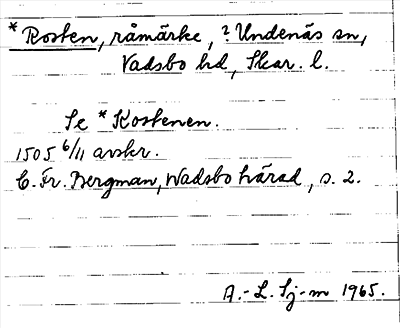 * Rosten, råmärke, ? Undenäs sn,
Vadsbo hd, Skar. l.
Se * Kostenen.
1505 6/11 avskr.
C. Fr. Bergman, Wadsbo härad, s. 2.
A.-L. Sj-m 1965.